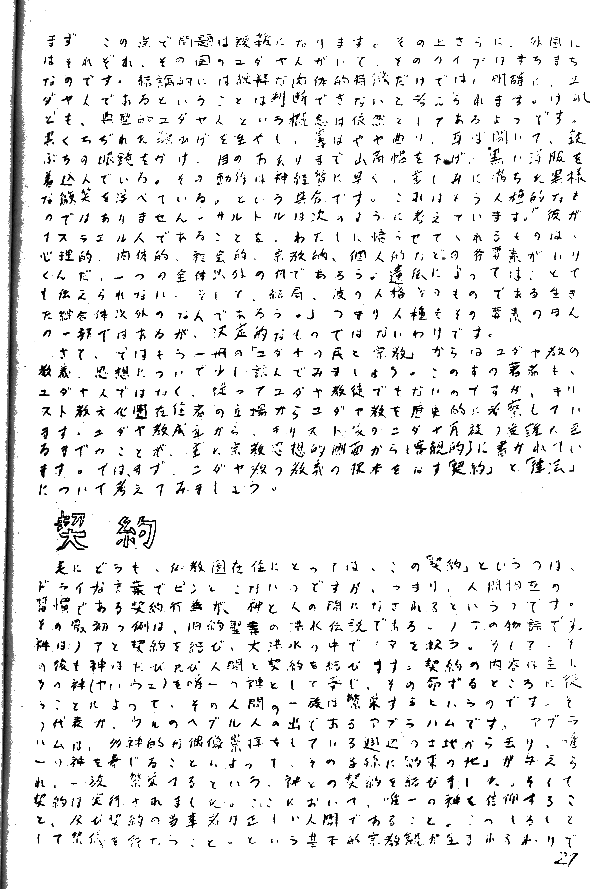 まず、この点で問題は複雑になります。その上さらに、外国に
はそれぞれ、その国のユダヤ人がいて、そのタイプはまちまち
なのです。結論的には純粋な肉体的特徴だけでは、明確に、ユ
ダヤ人であるということは判断できないと考えられます。けれ
ども、典型的ユダヤ人という概念は依然としてあるようです。
黒くちぢれた
ぶちの眼鏡をかけ、目のあたりまで山高帽を下げ、黒い洋服を
着込んでいる。その動作は神経質に早く、悲しみに満ちた異様
な微笑を浮べている。という具合です。これはもう人種的なも
のではありません。サルトルは次のように考えています。「彼が
イスラエル人であることを、わたしに悟らせてくれるものは、
心理的、肉体的、社会的、宗教的、個人的などの諸要素がいり
くんだ、一つの全体以外の何であろう。遺伝によってはことて
も伝えられない、そして、結局、彼の人格そのものである生き
た綜合体以外のなんであろう。」つまり人種もその要素のほん
の一部ではあるが、決定的なものではないわけです。
さて、ではもう一冊の「ユダヤの民と宗教」からはユダヤ教の
教義、思想について少し読んでみましょう。この本の著者も、
ユダヤ人ではなく、従ってユダヤ教徒でもないのですが、キリ
スト教文化圏在住者の立場からユダヤ教を歴史的に考察してい
ます。ユダヤ教成立から、キリスト
るまでのことが、主と宗教思想的側面から「客観的」に書かれてい
ます。ではまず、ユダヤ教の教義の根本をなす「契約」と「律法」
について考えてみましょう。
契約
尾にどうも、仏教国在住にとっては、この「契約」というのは、
ドライな言葉でピンとこないのですが、つまり、人間相互の
習慣である契約行為が、神と人の間になされるというのです。
その最初の例は、旧約聖書の洪水伝説である。ノアの物語です。
神はノアと契約を結び、大洪水の中でノアを救う。そして、そ
の後も神はたびたび人間と契約を結びます。契約の内容は主に
その神(ヤハウェ)を唯一の神として奉じ、その命ずるところに従
うことによって、その人間の一族は繁栄するというのです。そ
の代表が、ウルのヘブル人の出であるアブラハムです。アブラ
ハムは、多神的な偶像崇拝をしている周辺の土地から去り、唯
一の神を奉じることによって、その子孫に「約束の地」が与えら
れ、一族、繁栄するという、神との契約を結びました。そして
契約は実行されました。ここにおいて、唯一の神を信仰するこ
と、及び契約の当事者は正しい人間であること。このしるしと
して契儀を行なうこと。という基本的宗教観が生まれるわけで
27